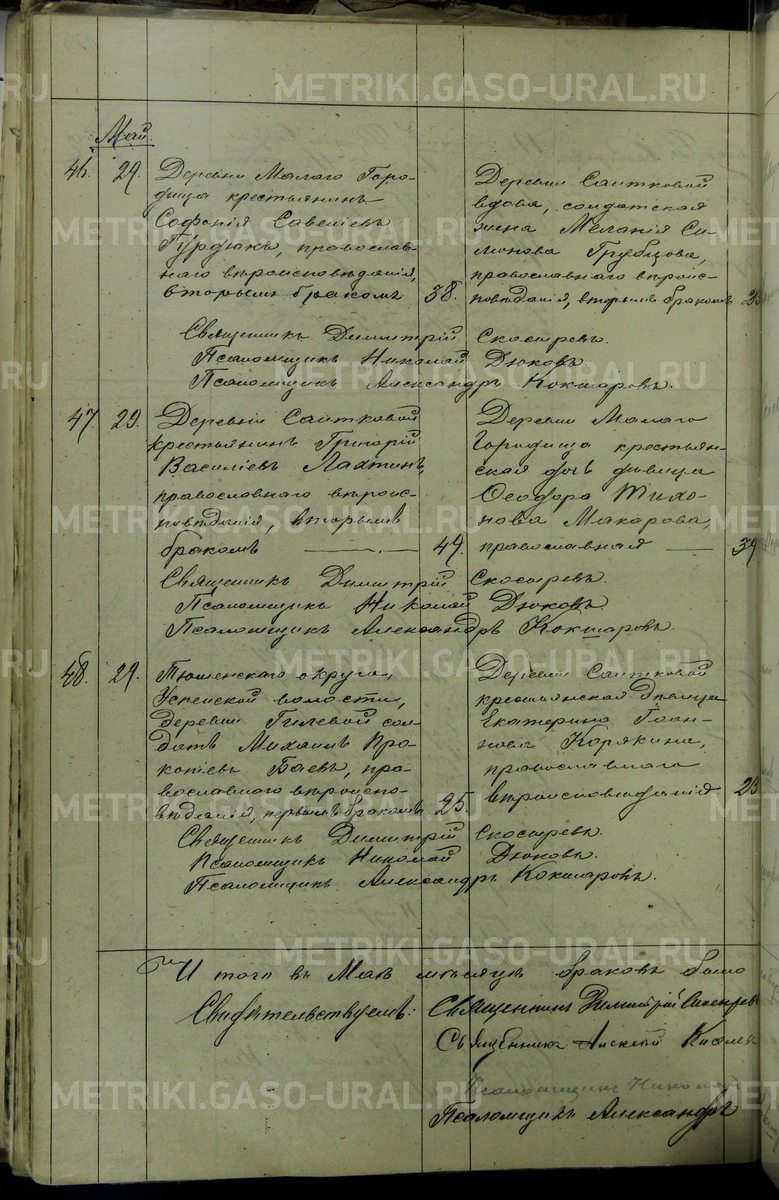 Май.
46. 29. Деревни Малаго Горо-
дища крестьянинъ
Софонія Савеліевъ
Гурдюкъ, православ-
наго вѣроисповѣданія,
вторымъ бракомъ 38.
Деревни Саитковой
вдова, солдатская
жена Меланія Си-
монова Грубцова,
православнаго вѣроис-
повѣданія, вторымъ бракомъ
Священникъ Димитрій Скосыревъ.
Псаломщикъ Николай Дюковъ.
Псаломщикъ Александръ Кокшаровъ.
47 29. Деревни Саитковой
крестьянинъ Григорій
Василіевъ Лахтинъ,
православнаго вѣроис-
повѣданія, вторымъ
бракомъ 49.
Деревни Малаго
Городища крестьян-
ская дочь девица
Ѳеодора Тихо-
нова Макарова,
православная 39
Священникъ Димитрій Скосыревъ.
Псаломщикъ Николай Дюковъ.
Псаломщикъ Александръ Кокшаровъ.
48. 29. Тюменскаго округа,
Успенской волости,
деревни Гилевой сол-
датъ Михаилъ Про-
копіевъ Баевъ, пра-
вославнаго вѣроиспо-
вѣданія, первымъ бракомъ 25.
Деревни Саитковой
крестьянская дѣвица
Екатерина Іоан-
нова Корякина,
православнаго
вѣроисповѣданія 23
Священникъ Димитрій Скосыревъ.
Псаломщикъ Николай Дюковъ.
Псаломщикъ Александръ Кокшаровъ.
Итого въ Маѣ мѣсяцѣ браковъ было
Свидѣтельствуемъ: Священникъ Димитрій
Священникъ Алексѣй
Псаломщикъ Николай
Псаломщикъ Александръ
METRIKI.GASO-URAL.RU